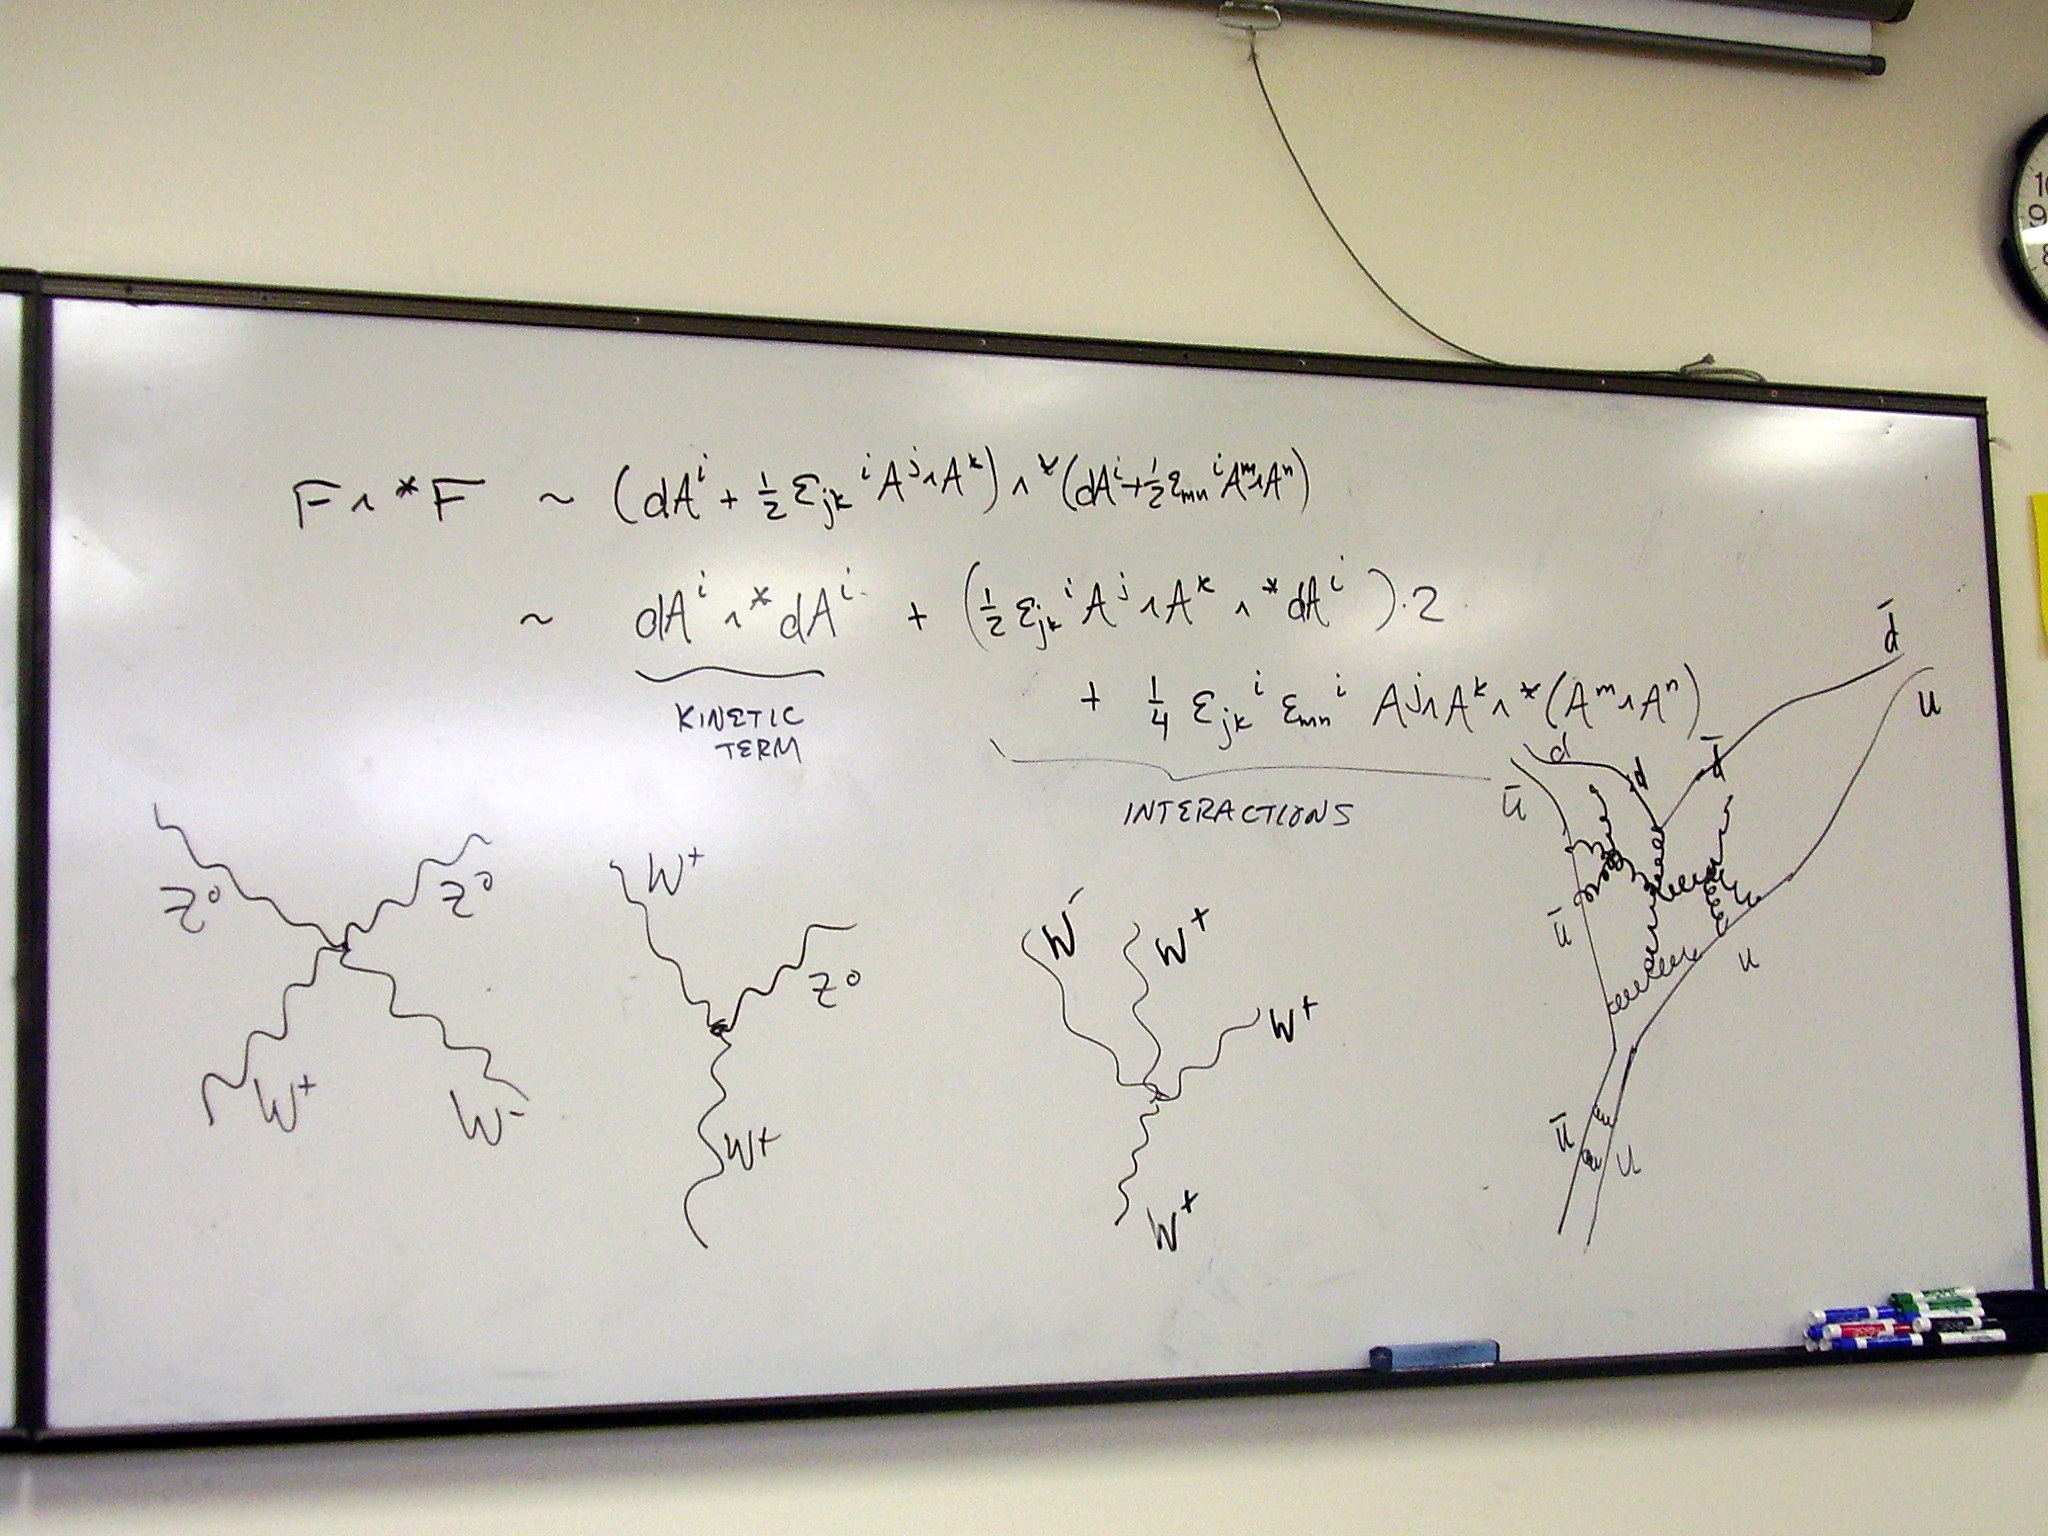 F ∧ *F ~ (dAⁱ + ½ ε_jk ⁱ Aʲ ∧ Aᵏ) ∧ *(dAⁱ + ½ ε_mn ⁱ Aᵐ ∧ Aⁿ)
~ dAⁱ ∧ *dAⁱ + (½ ε_jk ⁱ Aʲ ∧ Aᵏ ∧ *dAⁱ)·2
+ ¼ ε_jk ⁱ ε_mn ⁱ Aʲ ∧ Aᵏ ∧ *(Aᵐ ∧ Aⁿ)
KINETIC
TERM
INTERACTIONS
Z⁰ Z⁰
W⁺ W⁻
W⁺
Z⁰
W⁺
W⁻ W⁺
W⁺
W⁺
d̄
u
d d d̄
ū
ū u
ū u
10
9
8